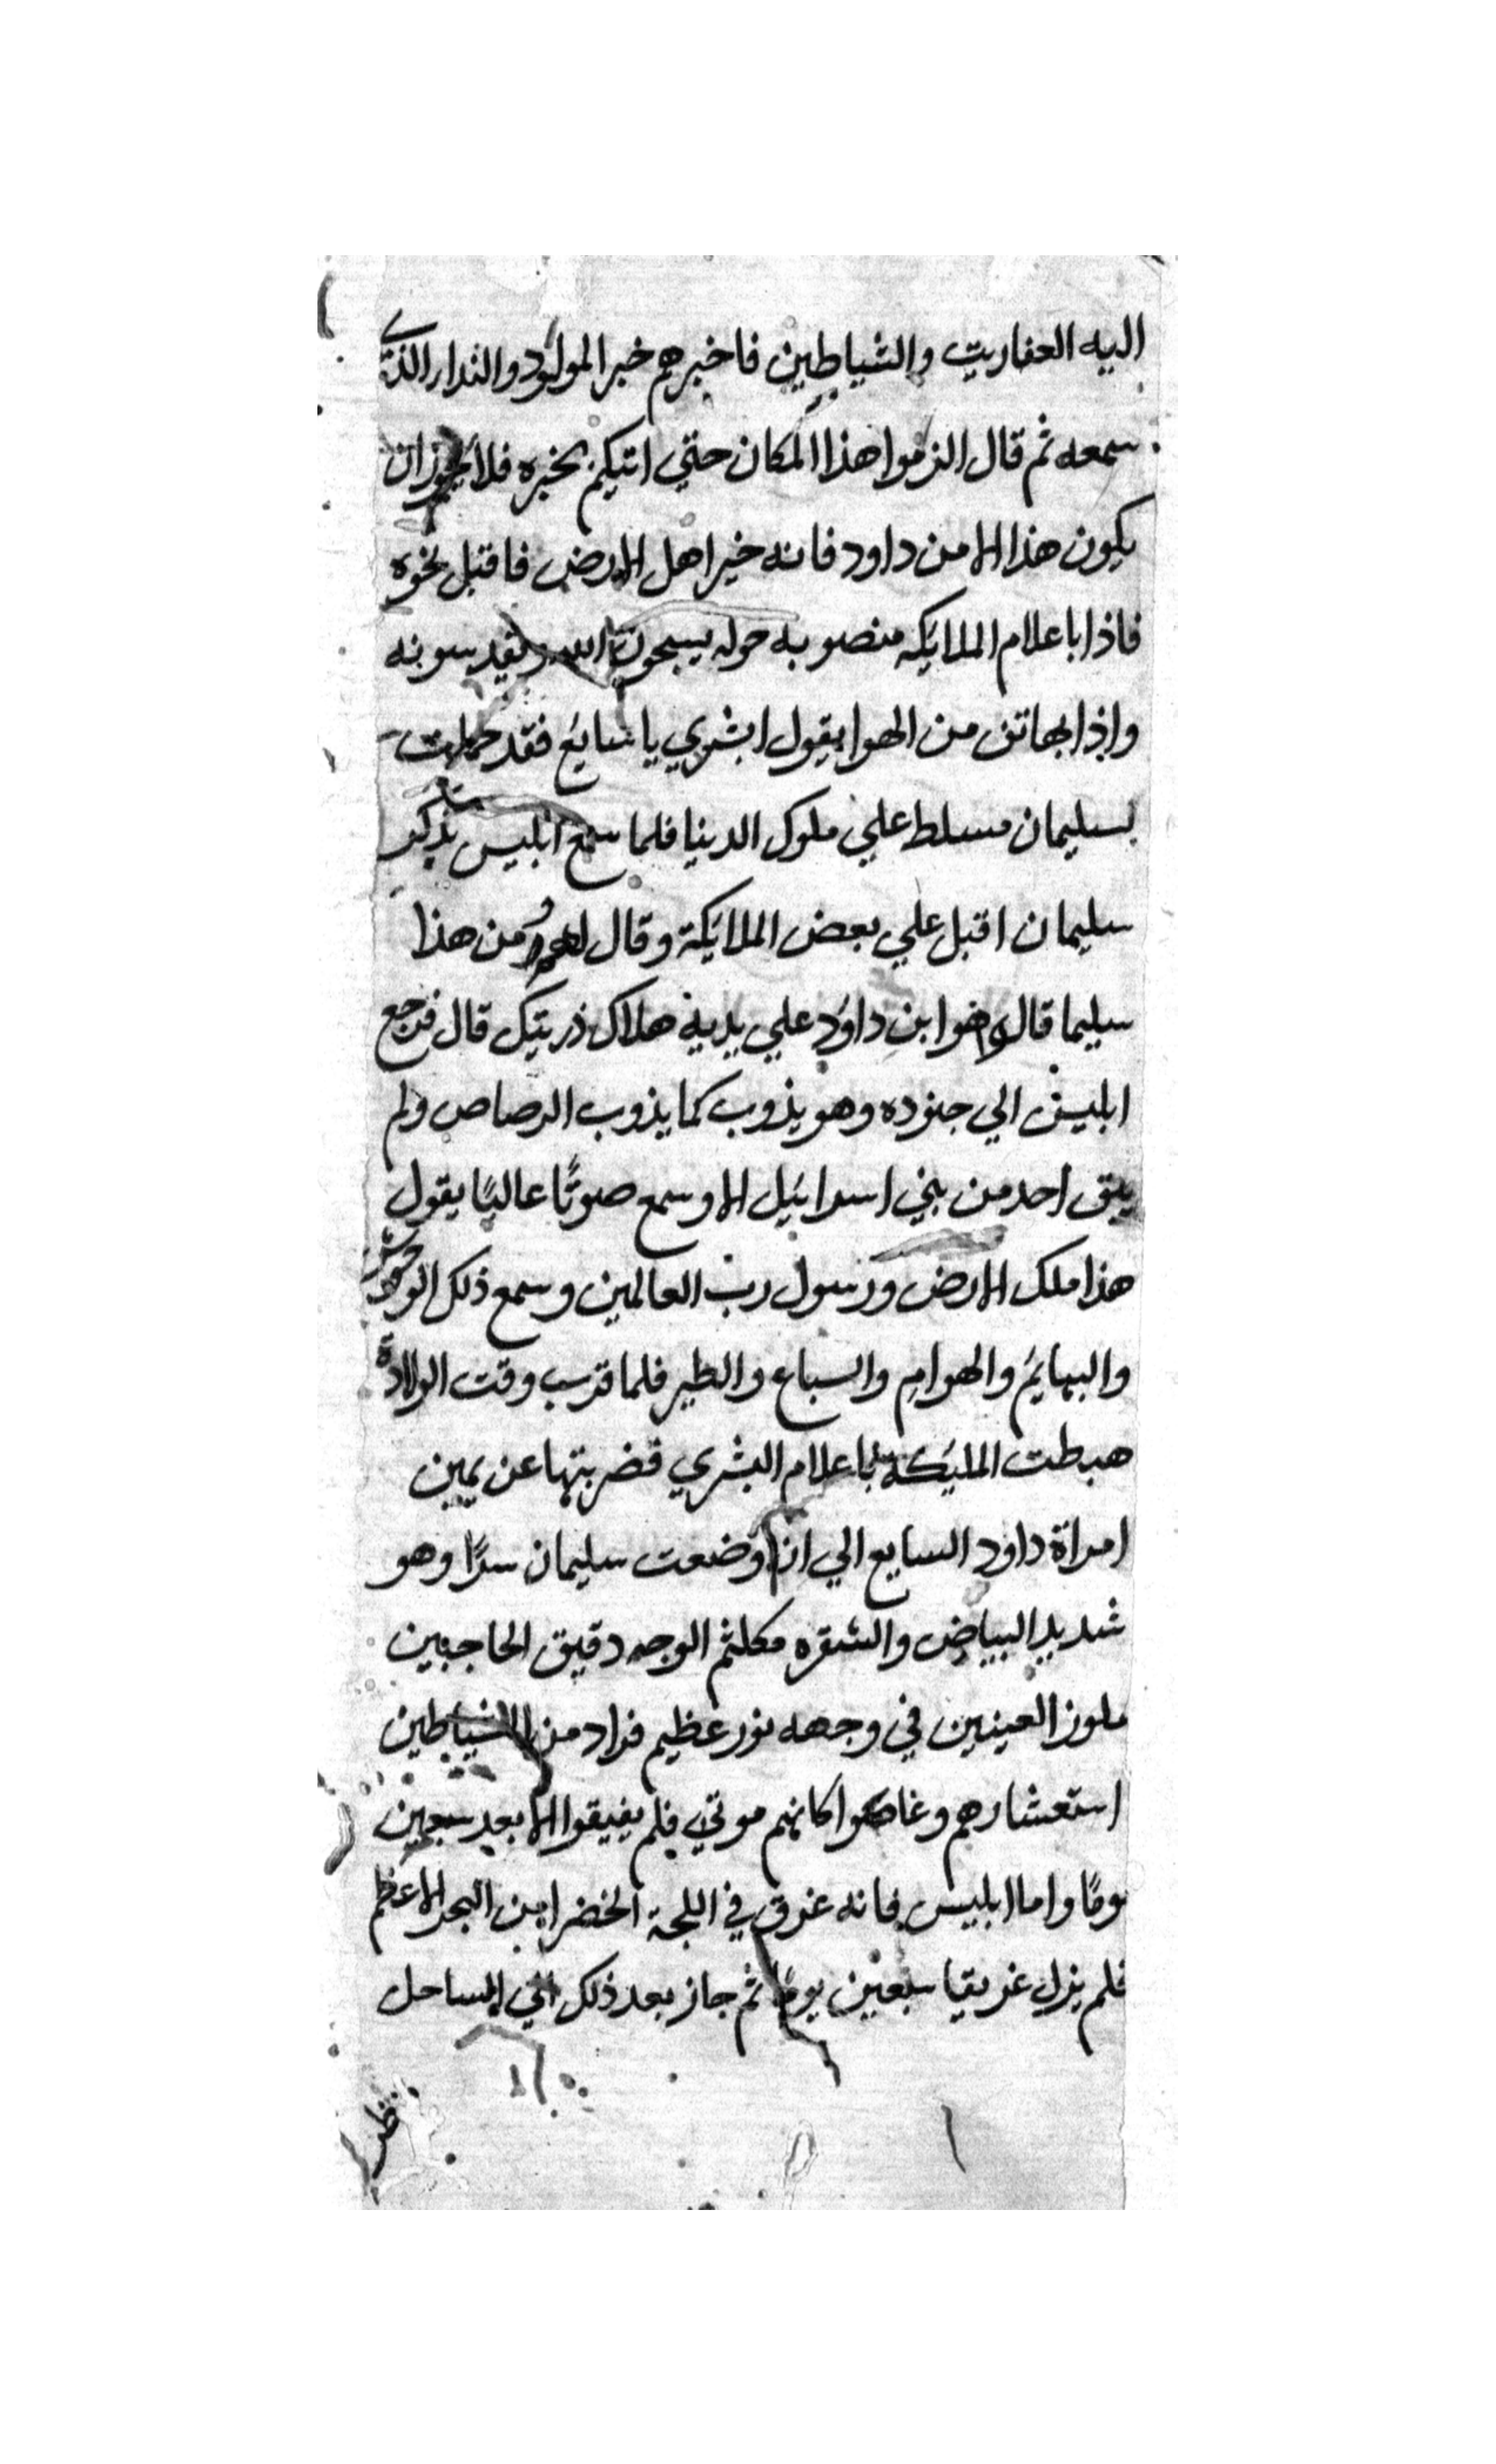 اليه العفاريت والشياطين فاخبرهم خبر المولود والندا الذي
سمعه ثم قال الزموا هذا المكان حتي اتيكم بخبره فلا يجوز ان
يكون هذا الا من داود فانه خير اهل الارض فاقبل نحوه
فاذا باعلام الملايكه منصوبه حوله يسبحون الله ويقدسونه
واذا بهاتف من الهوا يقول ابشري يا سايع فقد حملت
بسليمان مسلط علي ملوك الدنيا فلما سمع ابليس بذكر
سليمان اقبل علي بعض الملايكة وقال لهم من هذا
سليما قالوا هوا بن داود علي يديه هلاك ذريتك قال فرجع
ابليس الي جنوده وهو يذوب كما يذوب الرصاص ولم
يبق احد من بني اسرايل الا وسمع صوتًا عاليًا يقول
هذا ملك الارض ورسول رب العالمين وسمع ذلك الوحوش
والبهايم والهوام والسباع والطير فلما قرب وقت الولادة
هبطت المليكة باعلام البشري فضربتها عن يمين
امراة داود السايع الي ان وضعت سليمان سرًا وهو
شديد البياض والشقره مكلثم الوجه دقيق الحاجبين
ملوز العينين في وجهه نور عظيم فزاد من الشياطين
استعشارهم وغاصوا كانهم موتي فلم يفيقوا الا بعد سبعين
يومًا واما ابليس فانه غرق في اللجة الخضرا من البحر الاعظم
فلم يزل غريقا سبعين يومًا ثم جاز بعد ذلك الي الساحل